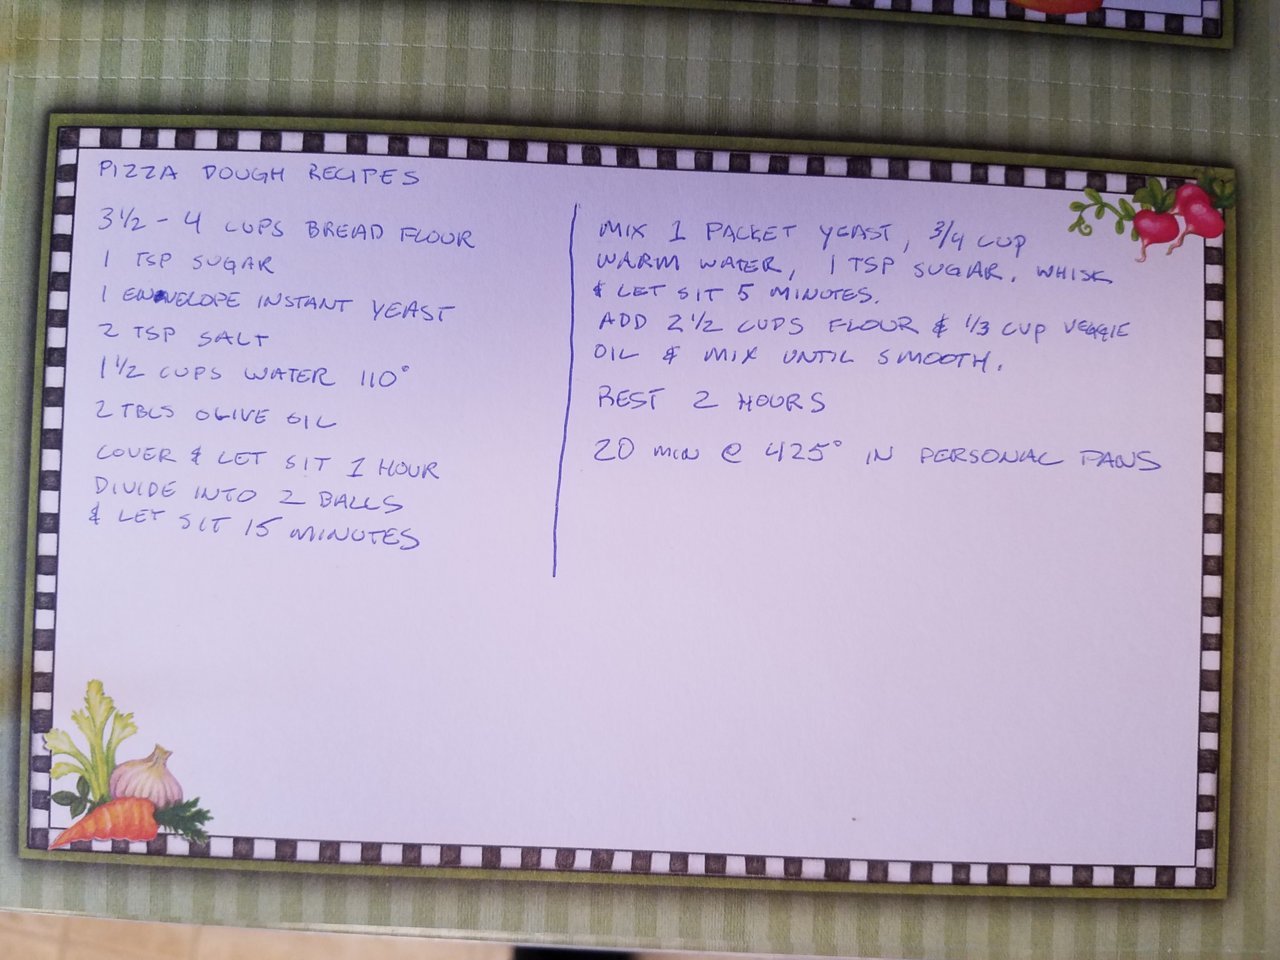 PIZZA DOUGH RECIPES
3 1/2 - 4 CUPS BREAD FLOUR
1 TSP SUGAR
1 ENVELOPE INSTANT YEAST
2 TSP SALT
1 1/2 CUPS WATER 110°
2 TBLS OLIVE OIL
COVER & LET SIT 1 HOUR
DIVIDE INTO 2 BALLS
& LET SIT 15 MINUTES
MIX 1 PACKET YEAST, 3/4 CUP
WARM WATER, 1 TSP SUGAR. WHISK
& LET SIT 5 MINUTES.
ADD 2 1/2 CUPS FLOUR & 1/3 CUP VEGGIE
OIL & MIX UNTIL SMOOTH.
REST 2 HOURS
20 MIN @ 425° IN PERSONAL PANS